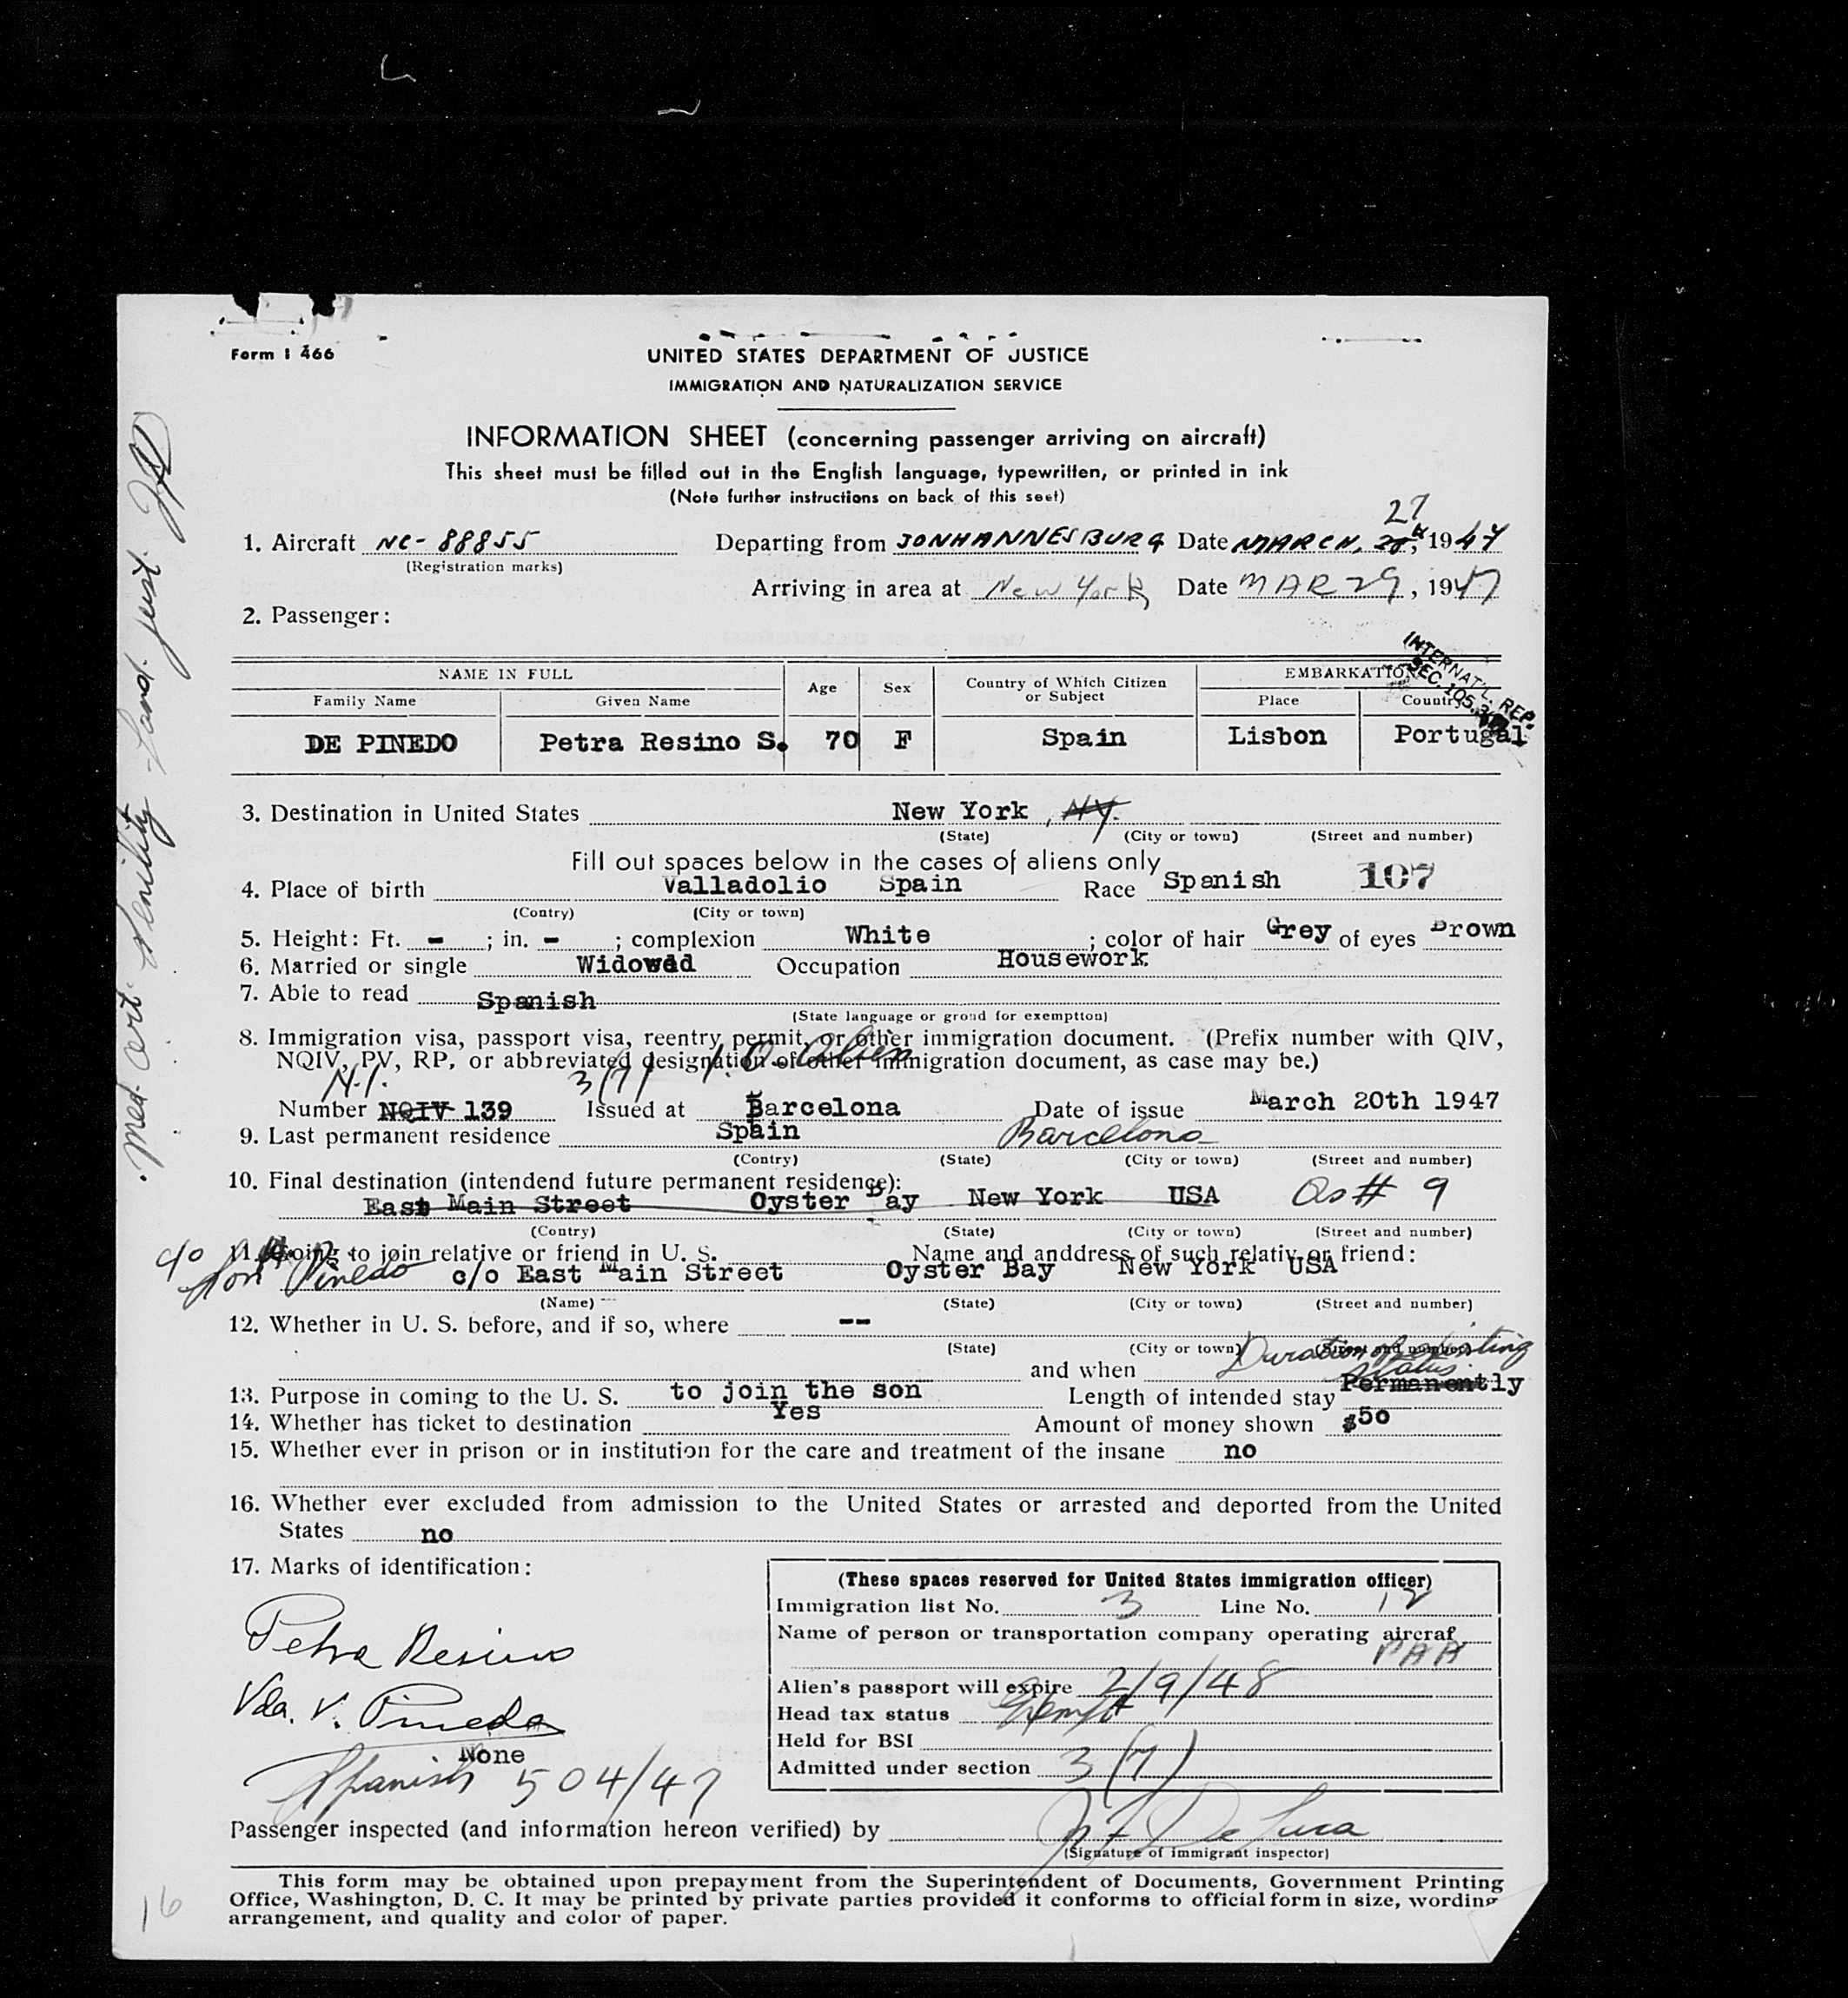 Form I 466
UNITED STATES DEPARTMENT OF JUSTICE
IMMIGRATION AND NATURALIZATION SERVICE
INFORMATION SHEET (concerning passenger arriving on aircraft)
This sheet must be filled out in the English language, typewritten, or printed in ink
(Note further instructions on back of this seet)
27
1. Aircraft NC-88855 Departing from JONHANNESBURG Date MARCH, 1947
(Registration marks)
Arriving in area at New York Date MAR 29, 1947
2. Passenger:
INTERNAT'L. REP.
SEC. 105.3
NAME IN FULL Age Sex Country of Which Citizen or Subject EMBARKATION
Family Name Given Name Place Country
DE PINEDO Petra Resino S. 70 F Spain Lisbon Portugal
3. Destination in United States New York, NY.
(State) (City or town) (Street and number)
Fill out spaces below in the cases of aliens only
4. Place of birth Valladolio Spain Race Spanish 107
(Contry) (City or town)
5. Height: Ft. - ; in. - ; complexion White ; color of hair Grey of eyes Brown
6. Married or single Widowed Occupation Housework
7. Able to read Spanish
(State language or groud for exemption)
8. Immigration visa, passport visa, reentry permit, or other immigration document. (Prefix number with QIV,
NQIV, PV, RP, or abbreviated designation of other immigration document, as case may be.)
N.I. 3(7)
Number NQIV 139 Issued at Barcelona Date of issue March 20th 1947
9. Last permanent residence Spain Barcelona
(Contry) (State) (City or town) (Street and number)
10. Final destination (intendend future permanent residence):
East Main Street Oyster Bay New York USA As # 9
(Contry) (State) (City or town) (Street and number)
11. Going to join relative or friend in U. S. Name and anddress of such relativ or friend:
c/o Son Pinedo c/o East Main Street Oyster Bay New York USA
(Name) (State) (City or town) (Street and number)
12. Whether in U. S. before, and if so, where --
(State) (City or town) (Street and number)
Duration of existing
status
and when
13. Purpose in coming to the U. S. to join the son Length of intended stay Permanently
14. Whether has ticket to destination Yes Amount of money shown $50
15. Whether ever in prison or in institution for the care and treatment of the insane no
16. Whether ever excluded from admission to the United States or arrested and deported from the United
States no
17. Marks of identification:
Petra Resino
Vda. V. Pinedo
None
Spanish 504/47
(These spaces reserved for United States immigration officer)
Immigration list No. 3 Line No. 12
Name of person or transportation company operating aircraf
PAA
Alien's passport will expire 2/9/48
Head tax status Exempt
Held for BSI
Admitted under section 3(7)
Passenger inspected (and information hereon verified) by J F De Luca
(Signature of immigrant inspector)
This form may be obtained upon prepayment from the Superintendent of Documents, Government Printing
Office, Washington, D. C. It may be printed by private parties provided it conforms to official form in size, wording
arrangement, and quality and color of paper.
16
Med. Cert. Senility Land. just.